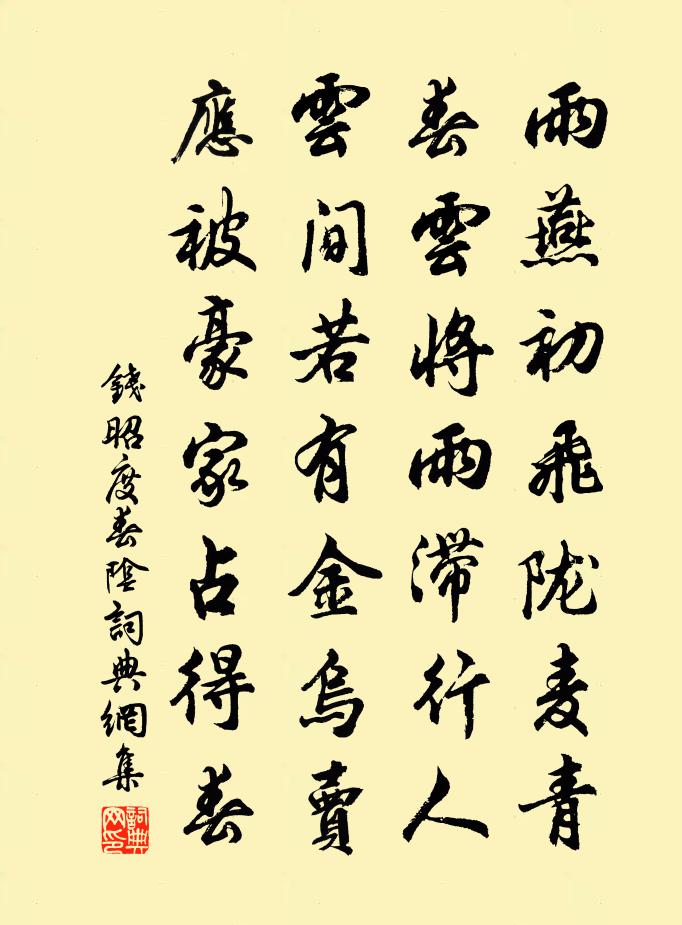 雨燕初飛陇麦青
春雲将雨滞行人
雲間若有金烏賣
應被豪家占得春
錢昭度春陰詞典網集
詞典网印